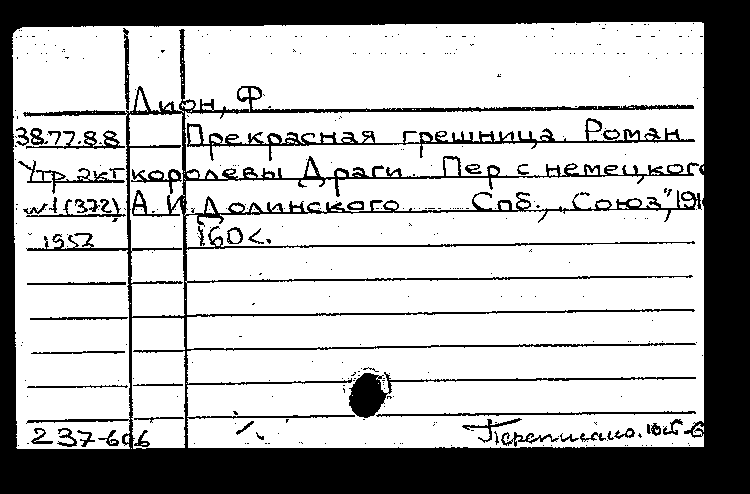 Лион, Ф.
38.77.8.8 Прекрасная грешница. Роман
Утр. акт королевы Драги. Пер с немецкого
№1 (372) А. И. Долинского. Спб., "Союз",
1952 160 с.
237-606 Переписано.